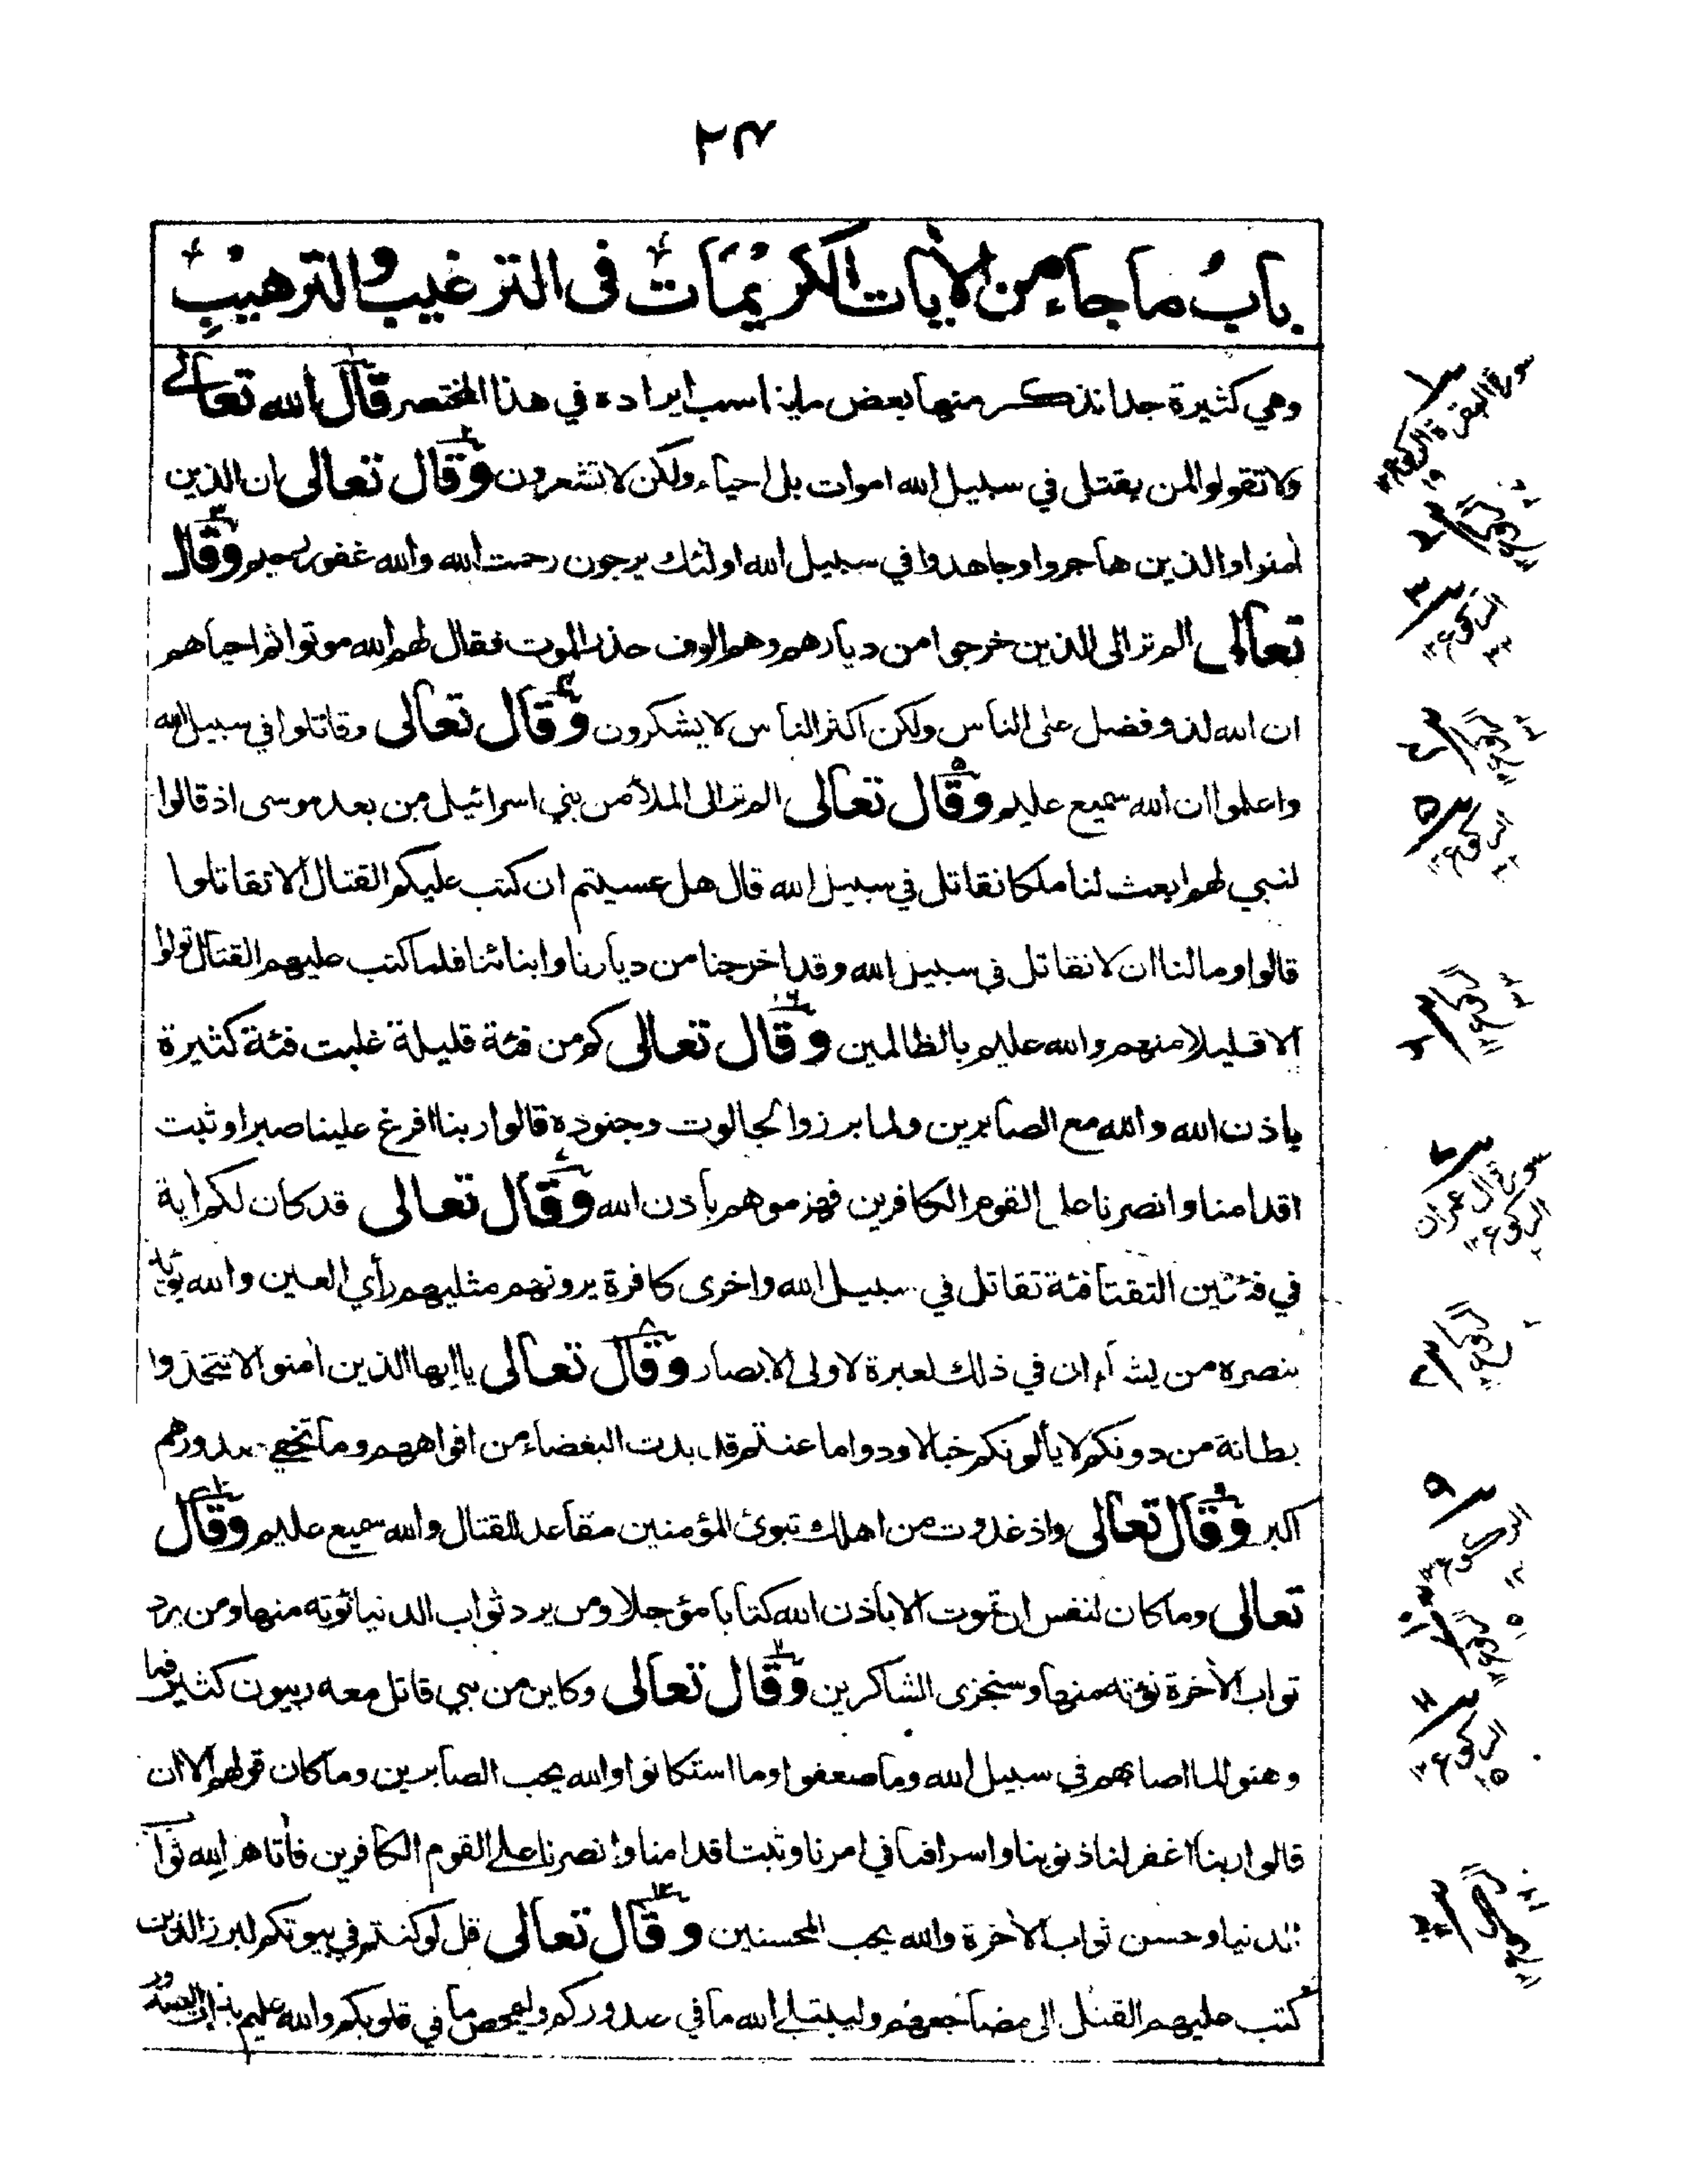 ٢٤
باب ما جاء من الايات الكريمات في الترغيب والترهيب
وهي كثيرة جدا نذكر منها بعض ما يناسب ايراده في هذا المختصر قال الله تعالى
ولا تقولوا لمن يقتل في سبيل الله اموات بل احياء ولكن لا تشعرون وقال تعالى ان الذين
امنوا والذين هاجروا وجاهدوا في سبيل الله اولئك يرجون رحمت الله والله غفور رحيم وقال
تعالى الم تر الى الذين خرجوا من ديارهم وهم الوف حذر الموت فقال لهم الله موتوا ثم احياهم
ان الله لذو فضل على الناس ولكن اكثر الناس لا يشكرون وقال تعالى وقاتلوا في سبيل الله
واعلموا ان الله سميع عليم وقال تعالى الم تر الى الملأ من بني اسرائيل من بعد موسى اذ قالوا
لنبي لهم ابعث لنا ملكا نقاتل في سبيل الله قال هل عسيتم ان كتب عليكم القتال الا تقاتلوا
قالوا وما لنا ان لا نقاتل في سبيل الله وقد اخرجنا من ديارنا وابنائنا فلما كتب عليهم القتال تولوا
الا قليلا منهم والله عليم بالظالمين وقال تعالى كم من فئة قليلة غلبت فئة كثيرة
باذن الله والله مع الصابرين ولما برزوا لجالوت وجنوده قالوا ربنا افرغ علينا صبرا وثبت
اقدامنا وانصرنا على القوم الكافرين فهزموهم باذن الله وقال تعالى قد كان لكم اية
في فئتين التقتا فئة تقاتل في سبيل الله واخرى كافرة يرونهم مثليهم رأي العين والله يؤيد
بنصره من يشاء ان في ذلك لعبرة لاولى الابصار وقال تعالى يا ايها الذين امنوا لا تتخذوا
بطانة من دونكم لا يألونكم خبالا ودوا ما عنتم قد بدت البغضاء من افواههم وما تخفي صدورهم
اكبر وقال تعالى واذ غدوت من اهلك تبوئ المؤمنين مقاعد للقتال والله سميع عليم وقال
تعالى وما كان لنفس ان تموت الا باذن الله كتابا مؤجلا ومن يرد ثواب الدنيا نوته منها ومن يرد
ثواب الأخرة نؤته منها وسنجزى الشاكرين وقال تعالى وكاين من نبي قاتل معه ربيون كثير فما
وهنوا لما اصابهم في سبيل الله وما ضعفوا وما استكانوا والله يحب الصابرين وما كان قولهم الا ان
قالوا ربنا اغفر لنا ذنوبنا واسرافنا في امرنا وثبت اقدامنا وانصرنا على القوم الكافرين فأتاهم الله ثواب
الدنيا وحسن ثواب الأخرة والله يحب المحسنين وقال تعالى قل لو كنتم في بيوتكم لبرز الذين
كتب عليهم القتل الى مضاجعهم وليبتلي الله ما في صدوركم وليمحص ما في قلوبكم والله عليم بذات الصدور
سورة البقرة الركوع
الركوع
الركوع
الركوع
الركوع
الركوع
سورة آل عمران
الركوع
الركوع
الركوع
الركوع
الركوع ١٥
الركوع